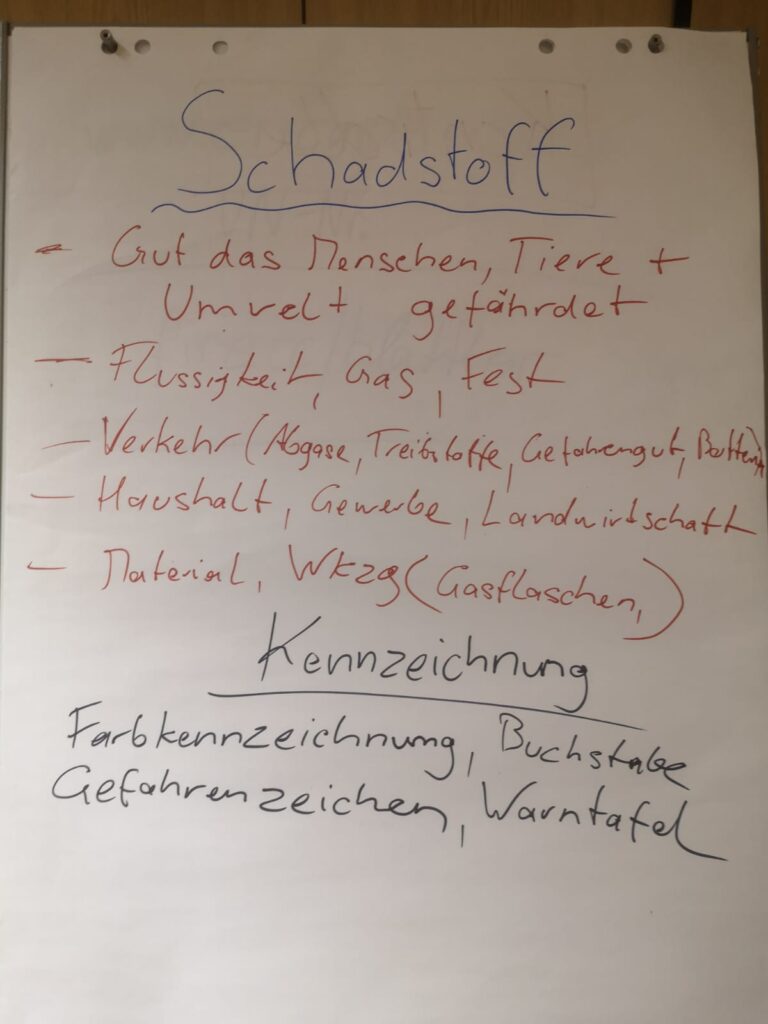 Schadstoff
- Gut das Menschen, Tiere +
Umwelt gefährdet
- Flussigkeit, Gas, Fest
- Verkehr (Abgase, Treibstoffe, Gefahrengut,
- Haushalt, Gewerbe, Landwirtschaft
- Material, Wkzg (Gasflaschen, )
Kennzeichnung
Farbkennzeichnung, Buchstabe
Gefahrenzeichen, Warntafel